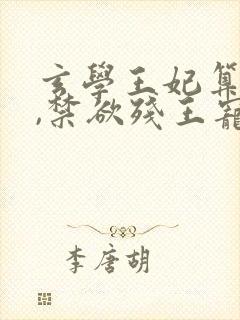 玄學王妃算
,禁欲殘王寵
李唐胡